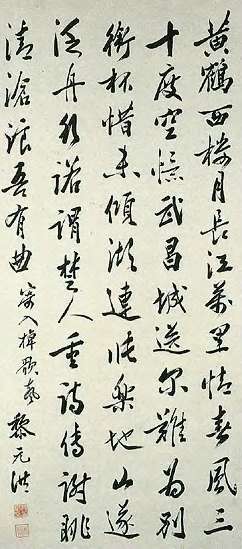 黃鶴西樓月長江萬里情春風三
十度空憶武昌城送尔難為別
銜杯惜未傾湖連張樂地山逐
泛舟行諾謂楚人重詩傳謝朓
清滄浪吾有曲寄入棹歌聲 黎元洪